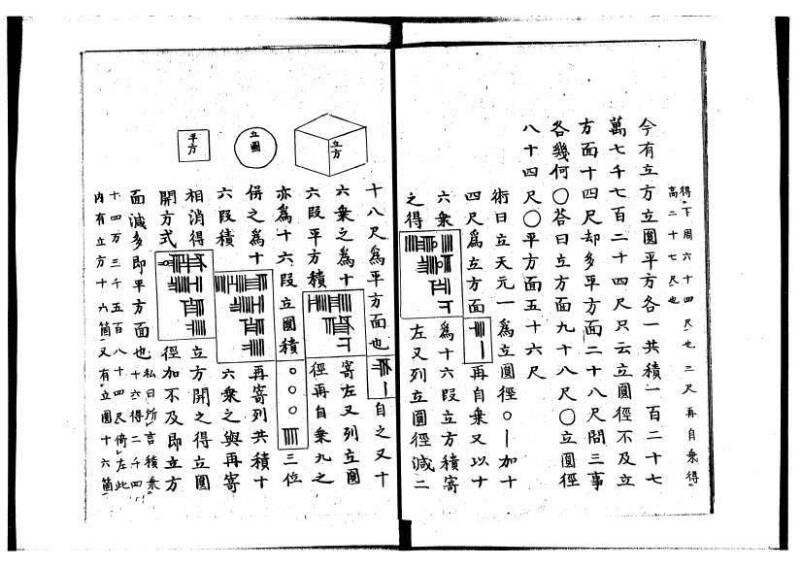 得下周六十四尺也三尺再自乗得
高二十七尺也
今有立方立圓平方各一共積一百二十七
萬七千七百二十四尺只云立圓徑不及立
方面十四尺却多平方面二十八尺問三事
各幾何〇荅曰立方面九十八尺〇立圓徑
八十四尺〇平方面五十六尺
術曰立天元一爲立圓徑〇｜加十
四尺爲立方面 再自乗又以十
六乗 爲十六段立方積寄
之得 左又列立圓徑減二
立方
立圓
平方
十八尺爲平方面也 自之又十
六乗之爲十 寄左又列立圓
六段平方積 徑再自乗九之
亦爲十六段立圓積〇〇〇 三位
併之爲十 再寄列共積十
六段積 六乗之與再寄
相消得 立方開之得立圓
開方式 徑加不及即立方
面減多即平方面也 私曰所言積乗
十六得二千四
十四万三千五百八十四尺倚左此
内有立方十六箇又有立圓十六箇